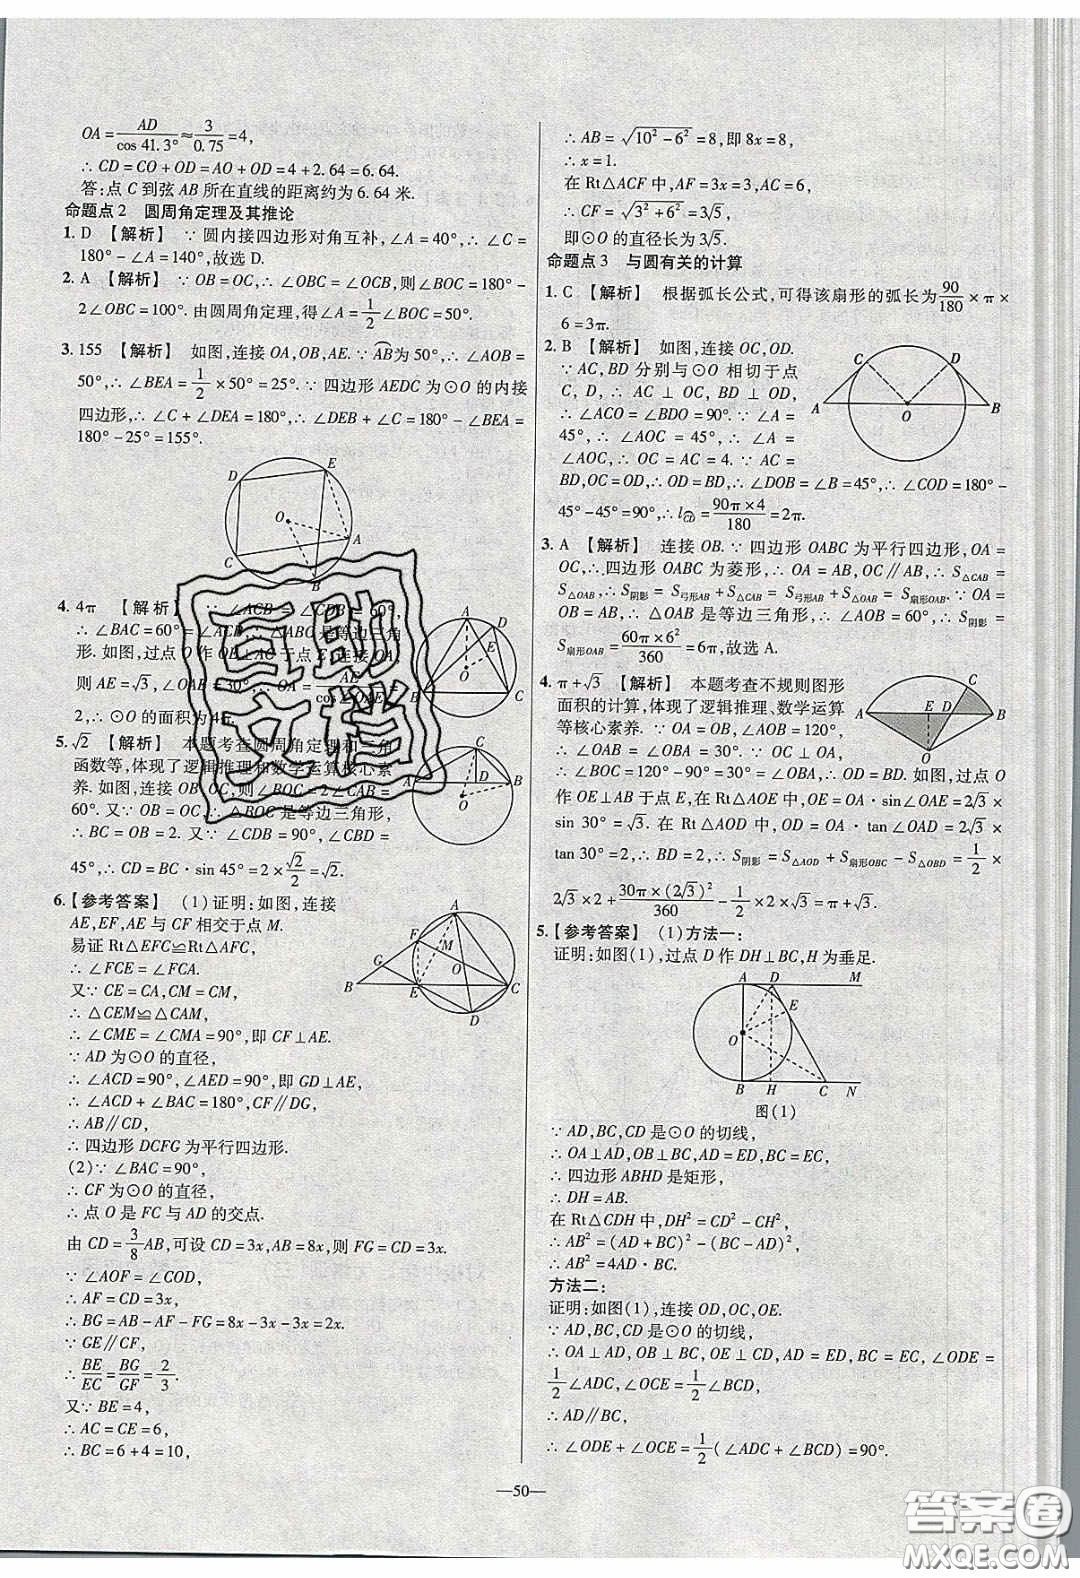 OA=AD/cos 41.3°≈3/0.75=4,
∴ CD=CO+OD=AO+OD=4+2.64=6.64.
答:点 C 到弦 AB 所在直线的距离约为 6.64 米.
命题点 2 圆周角定理及其推论
1. D 【解析】 ∵ 圆内接四边形对角互补,∠A=40°,∴ ∠C=
180°-∠A=140°,故选 D.
2. A 【解析】 ∵ OB=OC,∴ ∠OBC=∠OCB,则∠BOC=180°-
2∠OBC=180°-2×40°=100°. 由圆周角定理,得∠A=1/2∠BOC=50°.
3. 155 【解析】 如图,连接 OA,OB,AE. ∵ AB为 50°,∴ ∠AOB=
50°,∴ ∠BEA=1/2×50°=25°. ∵ 四边形 AEDC 为⊙O 的内接
四边形,∴ ∠C+∠DEA=180°,∴ ∠DEB+∠C=180°-∠BEA=
180°-25°=155°.
D E O A C B
4. 4π 【解析】 ∵ ∠ACB=∠CDB=60°,
∴ ∠BAC=60°=∠ACB,∴ △ABC是等边三角
形. 如图,过点 O 作 OE⊥AC 于点 E,连接 OA,
则 AE=√3,∠OAE=30°,∴ OA=AE/cos∠OAE=
2,∴ ⊙O 的面积为 4π.
A D E O B C
5. √2 【解析】 本题考查圆周角定理和三角
函数等,体现了逻辑推理和数学运算核心素
养. 如图,连接 OB,OC,则∠BOC=2∠CAB=
60°. 又∵ OB=OC,∴ △OBC是等边三角形,
∴ BC=OB=2. 又∵ ∠CDB=90°,∠CBD=
45°,∴ CD=BC·sin 45°=2×√2/2=√2.
C A D B O
6. 【参考答案】 (1)证明:如图,连接
AE,EF,AE 与 CF 相交于点 M.
易证 Rt△EFC≌Rt△AFC,
∴ ∠FCE=∠FCA.
又∵ CE=CA,CM=CM,
∴ △CEM≌△CAM,
∴ ∠CME=∠CMA=90°,即 CF⊥AE.
∵ AD 为⊙O 的直径,
∴ ∠ACD=90°,∠AED=90°,即 GD⊥AE,
∴ ∠ACD+∠BAC=180°,CF∥DG,
∴ AB∥CD,
∴ 四边形 DCFG 为平行四边形.
A F M G O B E C D
(2)∵ ∠BAC=90°,
∴ CF 为⊙O 的直径,
∴ 点 O 是 FC 与 AD 的交点.
由 CD=3/8AB,可设 CD=3x,AB=8x,则 FG=CD=3x.
∵ ∠AOF=∠COD,
∴ AF=CD=3x,
∴ BG=AB-AF-FG=8x-3x-3x=2x.
∵ GE∥CF,
∴ BE/EC=BG/GF=2/3.
又∵ BE=4,
∴ AC=CE=6,
∴ BC=6+4=10,
∴ AB=√10²-6²=8,即 8x=8,
∴ x=1.
在 Rt△ACF 中,AF=3x=3,AC=6,
∴ CF=√3²+6²=3√5,
即⊙O 的直径长为 3√5.
命题点 3 与圆有关的计算
1. C 【解析】 根据弧长公式,可得该扇形的弧长为90/180×π×
6=3π.
2. B 【解析】 如图,连接 OC,OD.
∵ AC,BD 分别与⊙O 相切于点
C,D,∴ AC⊥OC,BD⊥OD,
∴ ∠ACO=∠BDO=90°. ∵ ∠A=
45°,∴ ∠AOC=45°=∠A=
∠AOC,∴ OC=AC=4. ∵ AC=
BD,OC=OD,∴ OD=BD,∴ ∠DOB=∠B=45°,∴ ∠COD=180°-
45°-45°=90°,∴ lCD=90π×4/180=2π.
C D A O B
3. A 【解析】 连接 OB. ∵ 四边形 OABC 为平行四边形,OA=
OC,∴ 四边形 OABC 为菱形,∴ AB=OA,OC∥AB,∴ S△OAB=
S△CAB,∴ S阴影=S弓形AB+S△CAB=S弓形AB+S△OAB=S扇形OAB. ∵ OA=
OB=AB,∴ △OAB 是等边三角形,∴ ∠AOB=60°,∴ S阴影=
S扇形OAB=60π×6²/360=6π,故选 A.
4. π+√3 【解析】 本题考查不规则图形
面积的计算,体现了逻辑推理、数学运算
等核心素养. ∵ OA=OB,∠AOB=120°,
∴ ∠OAB=∠OBA=30°. ∵ OC⊥OA,
∴ ∠BOC=120°-90°=30°=∠OBA,∴ OD=BD. 如图,过点 O
作 OE⊥AB 于点 E,在 Rt△AOE 中,OE=OA·sin∠OAE=2√3×
sin 30°=√3. 在 Rt△AOD 中,OD=OA·tan∠OAD=2√3×
tan 30°=2,∴ BD=2,∴ S阴影=S△AOD+S扇形OBC-S△OBD=1/2×
2√3×2+30π×(2√3)²/360-1/2×2×√3=π+√3.
C A E D B O
5. 【参考答案】 (1)方法一:
证明:如图(1),过点 D 作 DH⊥BC,H 为垂足.
A D M E O B H C N
图(1)
∵ AD,BC,CD 是⊙O 的切线,
∴ OA⊥AD,OB⊥BC,AD=ED,BC=EC,
∴ 四边形 ABHD 是矩形,
∴ DH=AB.
在 Rt△CDH 中,DH²=CD²-CH²,
∴ AB²=(AD+BC)²-(BC-AD)²,
∴ AB²=4AD·BC.
方法二:
证明:如图(1),连接 OD,OC,OE.
∵ AD,BC,CD 是⊙O 的切线,
∴ OA⊥AD,OB⊥BC,OE⊥CD,AD=ED,BC=EC,∠ODE=
1/2∠ADC,∠OCE=1/2∠BCD,
∴ AD∥BC,
∴ ∠ODE+∠OCE=1/2(∠ADC+∠BCD)=90°.
—50—
百助文档
答案圈
MXQE.COM